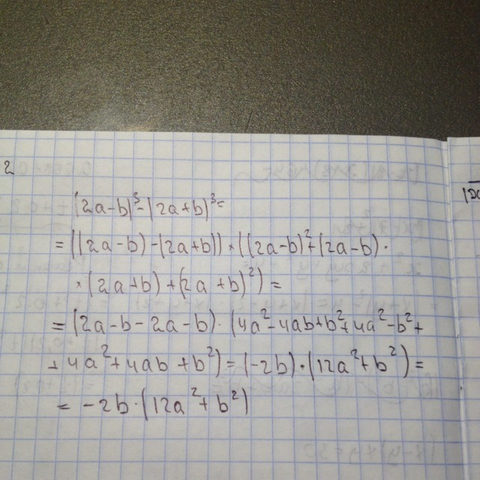 2
(2a-b)³-(2a+b)³=
=((2a-b)-(2a+b))·((2a-b)²+(2a-b)·
·(2a+b)+(2a+b)²)=
=(2a-b-2a-b)·(4a²-4ab+b²+4a²-b²+
+4a²+4ab+b²)=(-2b)·(12a²+b²)=
=-2b·(12a²+b²)